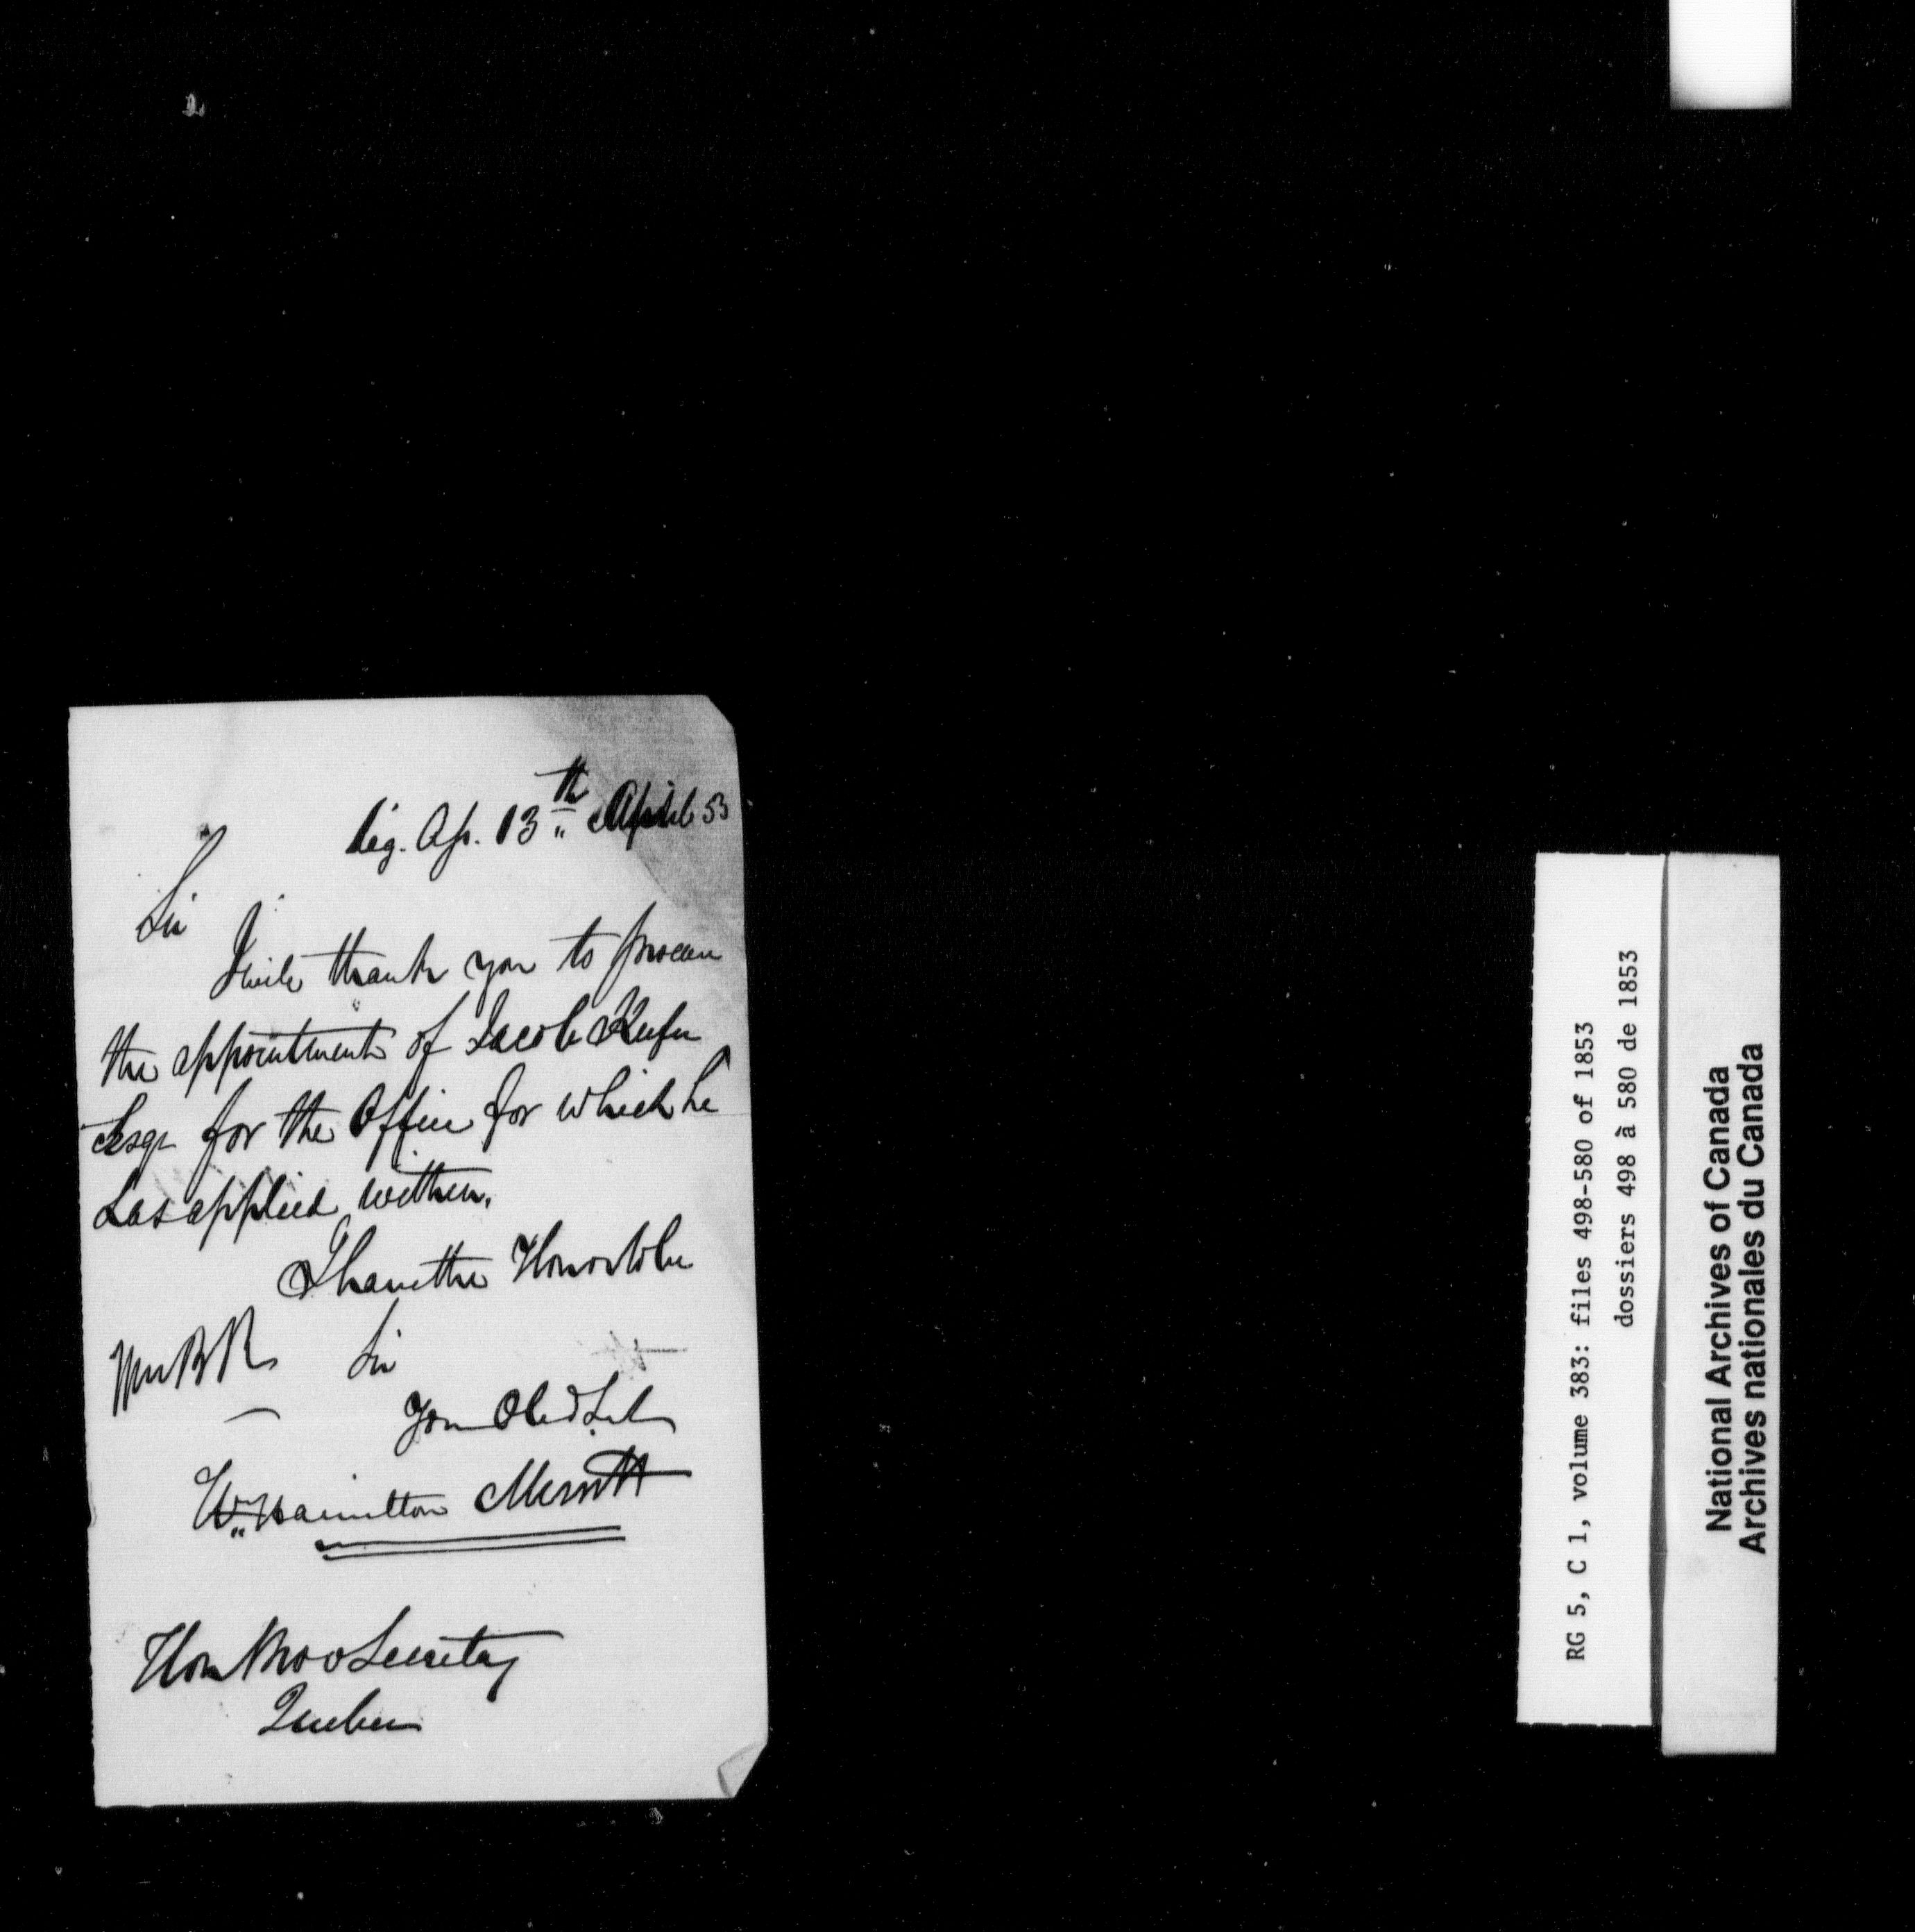 Leg. As. 13th April 53
Sir
I will thank you to procure
the appointment of Jacob Keefer
Esqr for the Office for which he
has applied within.
I have the Honor to be
Sir
Your Obed Set
Wm Hamilton Merritt
Hon Prov Secretary
Quebec
RG 5, C 1, volume 383: files 498-580 of 1853
dossiers 498 à 580 de 1853
National Archives of Canada
Archives nationales du Canada